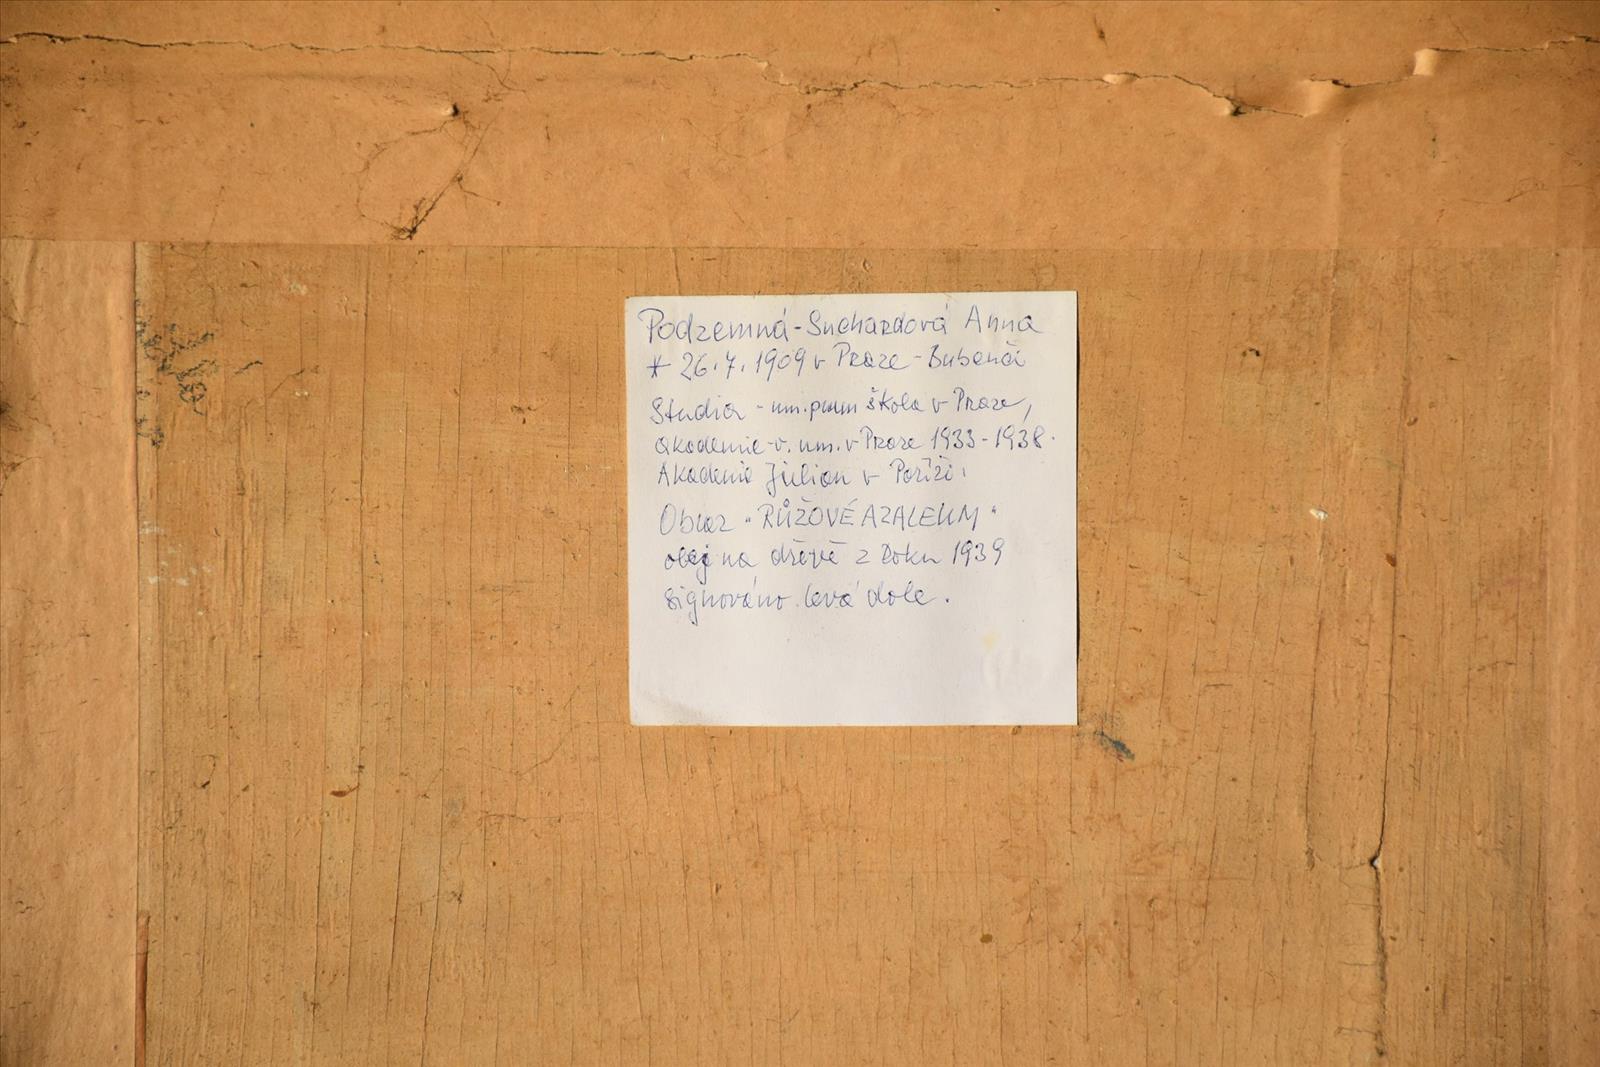 Podzemná-Suchardová Anna
* 26.7.1909 v Praze-Bubenči
Studia - um.prum škola v Praze,
akademie v. um. v Praze 1933-1938.
Akademie Julian v Paříži.
Obraz "RŮŽOVÉ AZALEUM"
olej na dřevě z roku 1939
signováno levá dole.